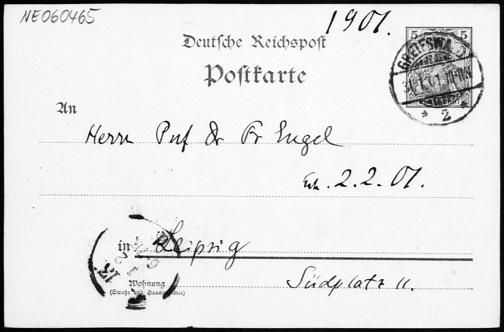 NE060465
1901.
Deutsche Reichspost
Postkarte
5 5
GREIFSWALD
* 2 *
An
Herrn Prof Dr Fr Engel
Erh. 2.2.01.
in Leipzig
Wohnung
(Straße und Hausnummer)
Südplatz 11.